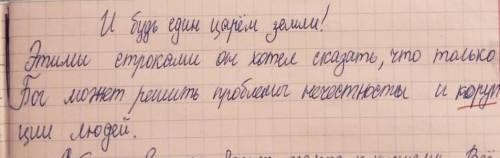 И будь един царём земли!
Этими строками он хотел сказать, что только
Бог может решить проблемы нечестносты и коруп
ции людей.